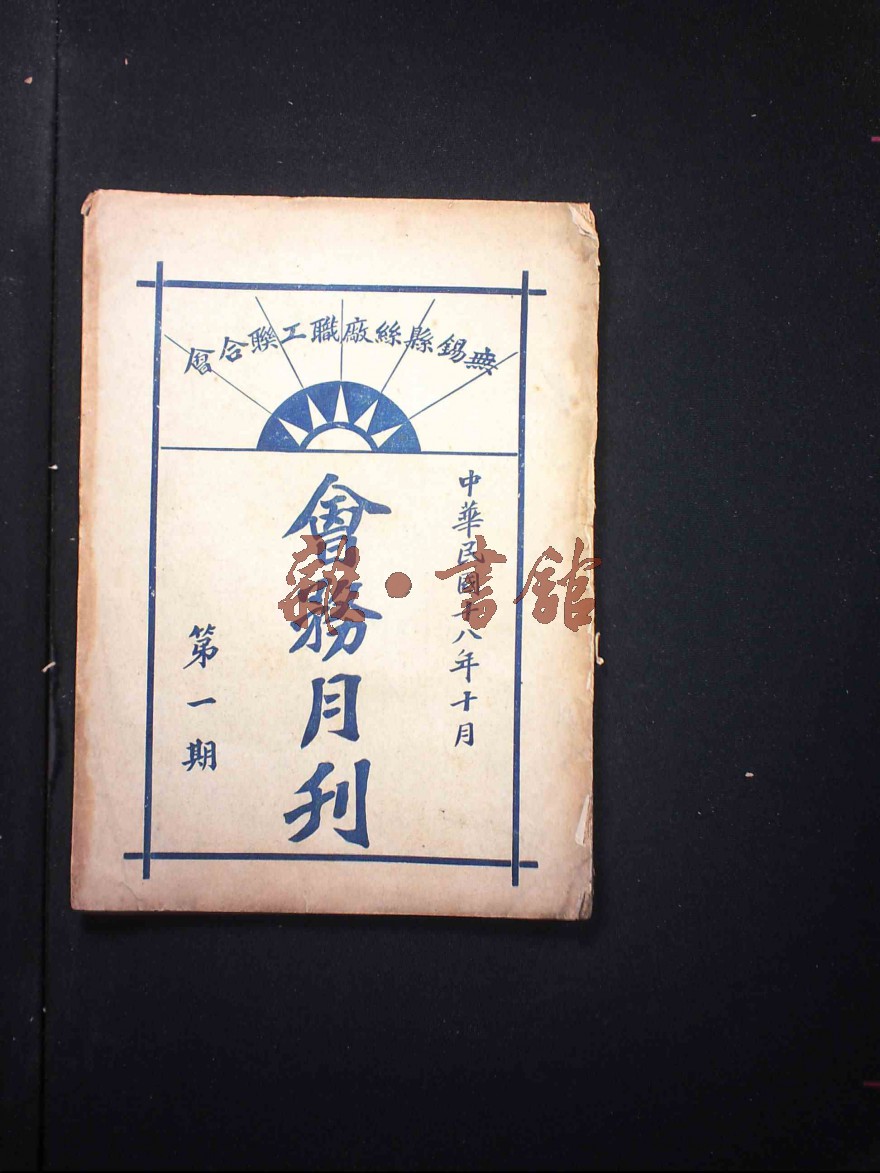 無錫縣絲廠職工聯合會
中華民國十八年十月
會務月刊
第一期
書館